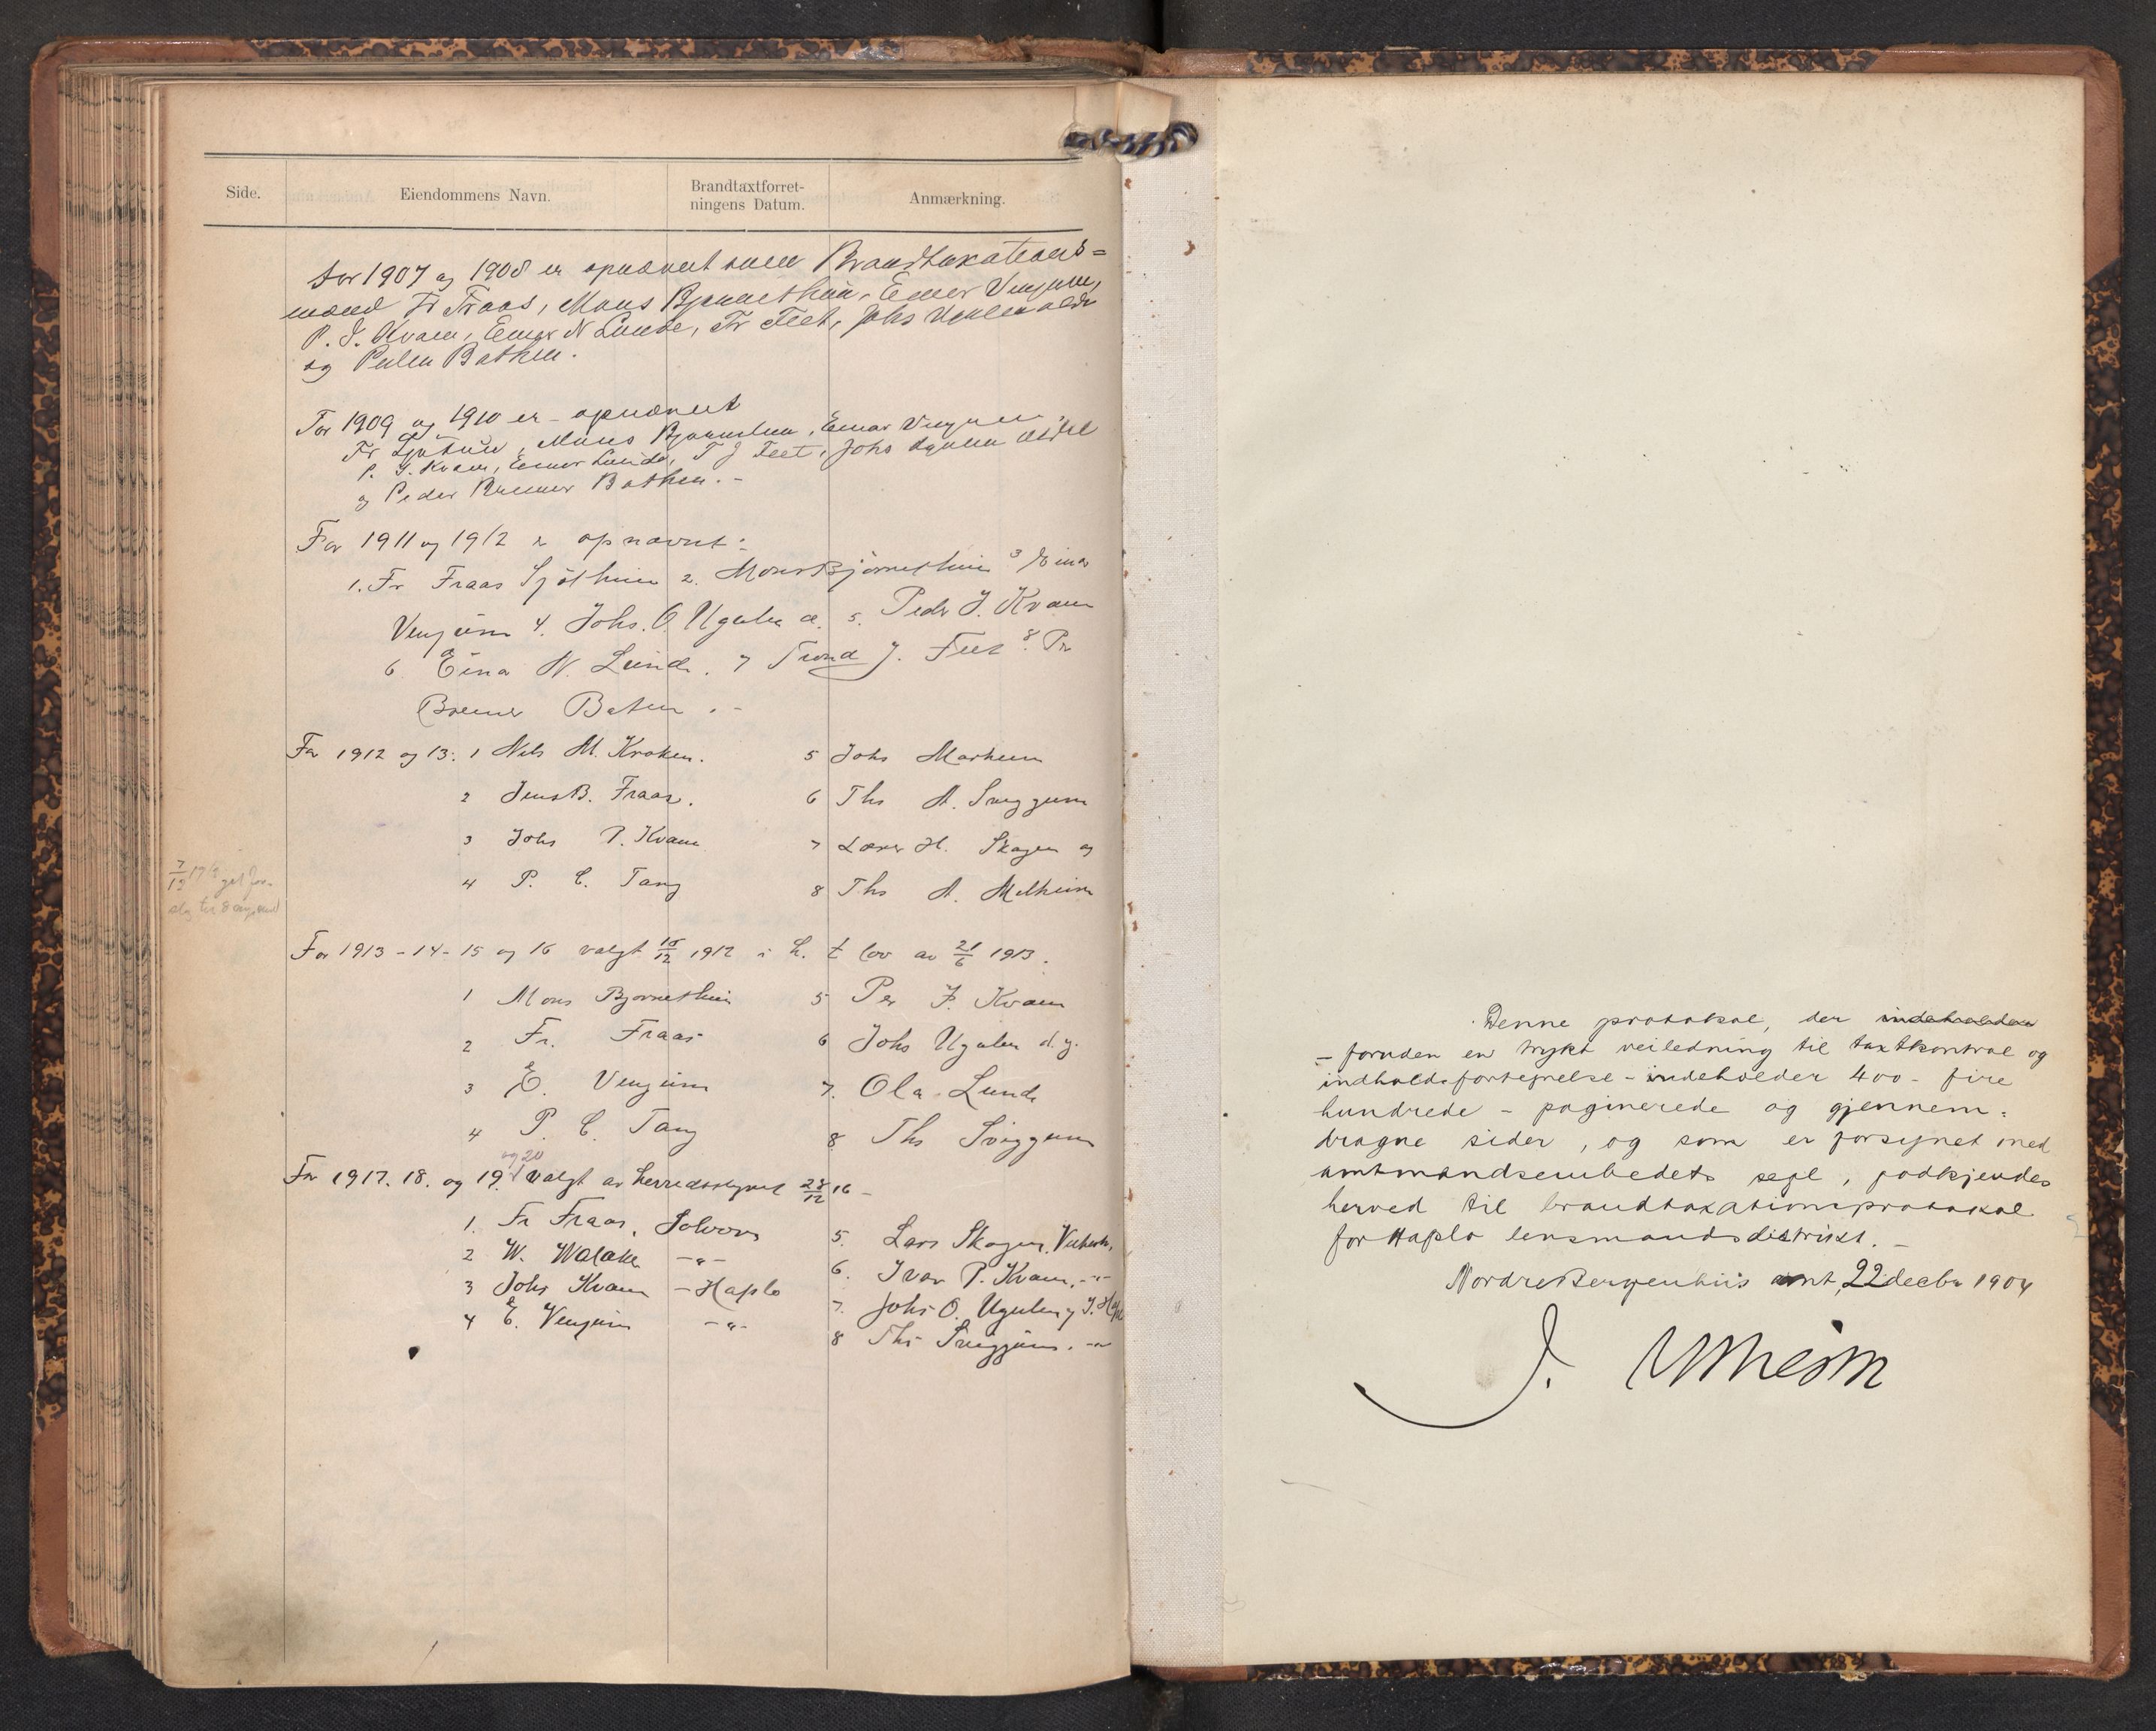 Side.
Eiendommens Navn.
Brandtaxtforret-
ningens Datum.
Anmærkning.
For 1907 og 1908 er opnævnt som Brandtaxations=
mænd Fr Fraas, Mons Bjørnethun, Einar Venjum,
P. J. Kvam, Einar N Lunde, Fr Feet, Johs
og Bathen.
For 1909 og 1910 er opnævnt
Fr Mons Bjørnethun, Einar Venjum
P. J. Kvam, Einar Lunde, T J Feet, Johs
og Peder Bremer Bathen. -
For 1911 og 1912 er opnævnt:
1. Fr Fraas Sjøthun 2. Mons Bjørnethun 3 Einar
Venjum 4. Johs. O Ugulen æ. 5. Pedr J. Kvam
6 Einar N. Lunde. 7 Trond J. Feet 8. Pr
Bremer Baten. -
For 1912 og 13: 1 Nils M. Kroken. 5 Johs Marheim
2 Jens B. Fraas. 6 Ths A. Sviggum
3 Johs P. Kvam 7 Lærer H. Skagen og
4 P. C. Tang 8 Ths A. Melheim
For 1913-14-15 og 16 valgt 15/12 1912 i h. t lov av 21/6 1913.
1 Mons Bjørnethun 5 Per J. Kvam
2 Fr. Fraas 6 Johs Ugulen d.y.
3 E. Venjum 7. Ola Lunde
4 P. C. Tang 8 Ths Sviggum
og 20
For 1917. 18. og 19. valgt av herredsstyret 28/12 16 -
1. Fr Fraas, Solvorn 5. Lars Skagen,
2 W. Walaker -"- 6. Ivar P. Kvam, -"-
3 Johs Kvam - Hafslo 7. Johs O. Ugulen
4 E. Venjum -"- 8 Ths Sviggum. -"-
Denne protokol, der indeholder
- foruden en trykt veiledning til taxtkontrol og
indholdsfortegnelse - indeholder 400 - fire
hundrede - paginerede og gjennem=
dragne sider, og som er forsynet med
amtmandsembedets segl, godkjendes
herved til brandtaxationsprotokol
for Hafslo lensmandsdistrikt. -
Nordre Bergenhus amt, 22 decbr 1904
J. Utheim